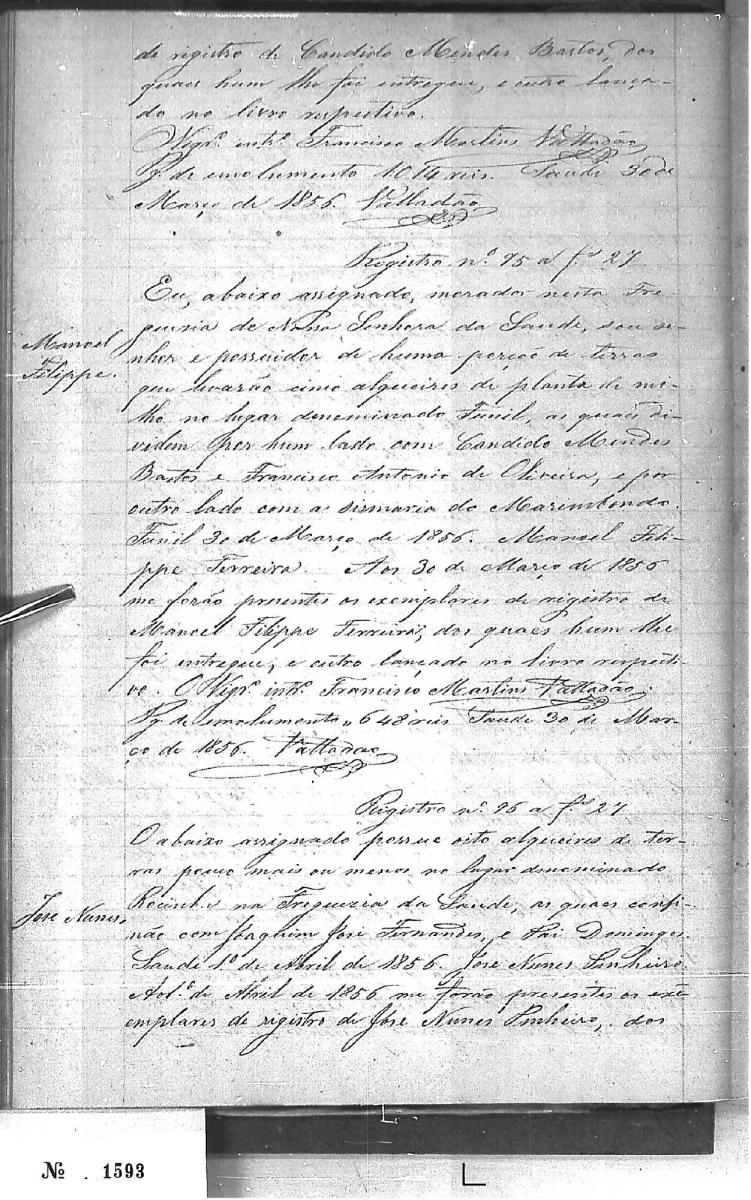 de registro de Candido Mendes Bastos, dos
quaes hum lhe foi entregue, e outro lança-
do no livro respectivo.
Vigrº. intrº. Francisco Martins Valladão
Pg. de emolumento 1014 reis. Saude 30 de
Março de 1856. Valladão
Registro nº. 95 a fs 27
Eu, abaixo assignado, morador nesta Fre
guezia de Nossa Senhora da Saude, sou se-
Manoel Filippe.
nhor e possuidor de huma porção de terras
que levarão cinco alqueires de planta de mi-
lho no lugar denominado Funil, as quaes di-
videm por hum lado com Candido Mendes
Bastos e Francisco Antonio de Oliveira, e por
outro lado com a sismaria do Marimbondo.
Funil 30 de Março de 1856. Manoel Fili-
ppe Ferreira. Aos 30 de Março de 1856
me forão presentes os exemplares de registro de
Manoel Filippe Ferreira, dos quaes hum lhe
foi entregue, e outro lançado no livro respecti-
vo. O Vigrº. intrº. Francisco Martins Valladão.
Pg. de emolumento " 648 reis Saude 30 de Mar-
ço de 1856. Valladão
Registro nº. 96 a fs 27
O abaixo assignado possue oito alqueires de ter-
ras pouco mais ou menos no lugar denominado
na Freguezia da Saude, as quaes confi-
José Nunes,
não com Joaquim José Fernandes, e Pai Domingos.
Saude 1º. de Abril de 1856. José Nunes Pinheiro.
Ao 1º. de Abril de 1856 me forão presentes os exe
emplares de registro de José Nunes Pinheiro, dos
Nº . 1593